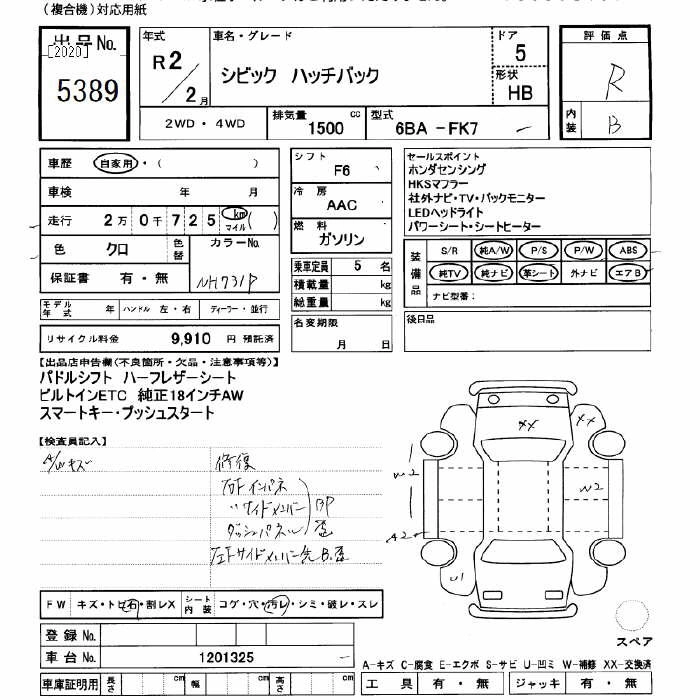 (複合機)対応用紙
出品No.
[2020]
5389
年式
R2/2月
車名・グレード
シビック ハッチバック
ドア
5
形状
HB
評価点
R
内装
B
2WD・4WD
排気量
1500 cc
型式
6BA -FK7
車歴 自家用・( )
車検 年 月
走行 2万0千725 km マイル ( )
色 クロ
色替
カラーNo.
NH731P
保証書 有・無
モデル年式 年
ハンドル 左・右
ディーラー・並行
リサイクル料金 9,910 円 預託済
シフト
F6
冷房
AAC
燃料
ガソリン
乗車定員 5 名
積載量 kg
総重量 kg
名変期限
月 日
セールスポイント
ホンダセンシング
HKSマフラー
社外ナビ・TV・バックモニター
LEDヘッドライト
パワーシート・シートヒーター
装備品
S/R 純A/W P/S P/W ABS
純TV 純ナビ 革シート 外ナビ エアB
ナビ型番:
後日品
【出品店申告欄(不良箇所・欠品・注意事項等)】
パドルシフト ハーフレザーシート
ビルトインETC 純正18インチAW
スマートキー・プッシュスタート
【検査員記入】
A/Wキズ
修復
右下インパネ
〃サイドメンバー
ダッシュパネル
BP
歪
左下サイドメンバー先B.歪
XX
XX
W2
W2
A2
U1
FW キズ・トビ石・割レX
シート内装 コゲ・穴・汚レ・シミ・破レ・スレ
登録No.
車台No. 1201325
車庫証明用 長さ cm 幅 cm 高さ cm
スペア
A-キズ C-腐食 E-エクボ S-サビ U-凹ミ W-補修 XX-交換済
工具 有・無 ジャッキ 有・無